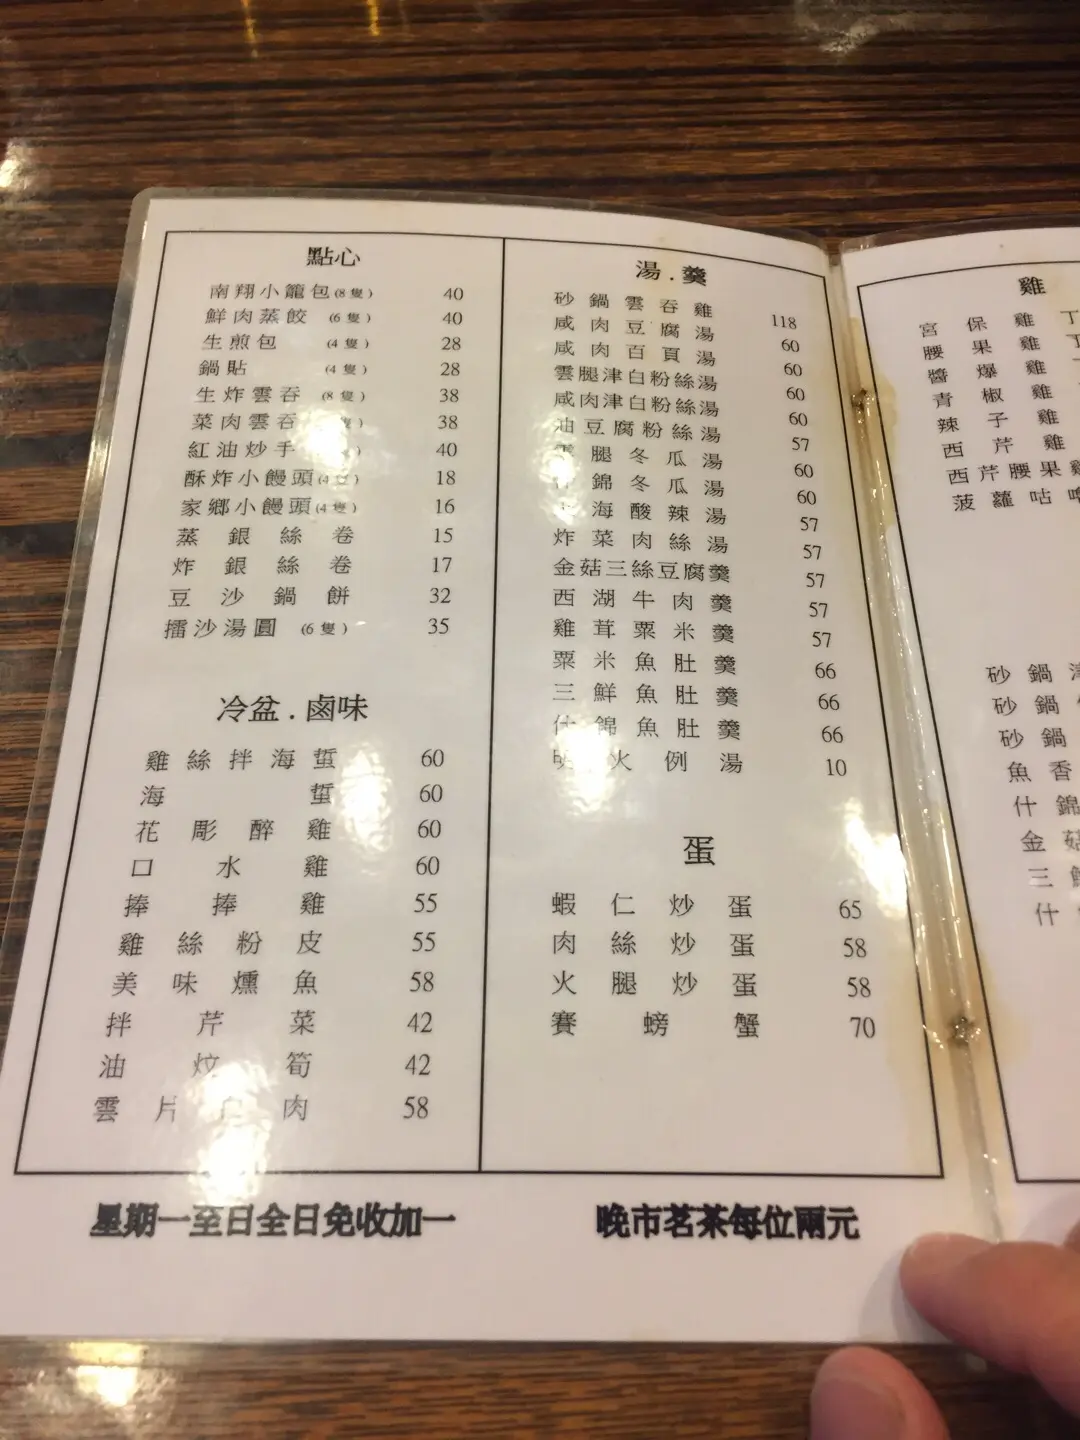 點心
南翔小籠包(8隻) 40
鮮肉蒸餃 (6隻) 40
生煎包 (4隻) 28
鍋貼 (4隻) 28
生炸雲吞 (8隻) 38
菜肉雲吞 38
紅油炒手 40
酥炸小饅頭(4隻) 18
家鄉小饅頭(4隻) 16
蒸銀絲卷 15
炸銀絲卷 17
豆沙鍋餅 32
擂沙湯圓 (6隻) 35
冷盆.鹵味
雞絲拌海蜇 60
海蜇 60
花彫醉雞 60
口水雞 60
捧捧雞 55
雞絲粉皮 55
美味燻魚 58
拌芹菜 42
油炆筍 42
雲片白肉 58
湯.羹
砂鍋雲吞雞 118
咸肉豆腐湯 60
咸肉百頁湯 60
雲腿津白粉絲湯 60
咸肉津白粉絲湯 60
油豆腐粉絲湯 57
腿冬瓜湯 60
錦冬瓜湯 60
海酸辣湯 57
炸菜肉絲湯 57
金菇三絲豆腐羹 57
西湖牛肉羹 57
雞茸粟米羹 57
粟米魚肚羹 66
三鮮魚肚羹 66
什錦魚肚羹 66
火例湯 10
蛋
蝦仁炒蛋 65
肉絲炒蛋 58
火腿炒蛋 58
賽螃蟹 70
雞
宮保雞丁
腰果雞丁
醬爆雞
青椒雞
辣子雞
西芹雞
西芹腰果雞
菠蘿咕
砂鍋
砂鍋
砂鍋
魚香
什錦
金菇
三鮮
什
星期一至日全日免收加一
晚市茗茶每位兩元